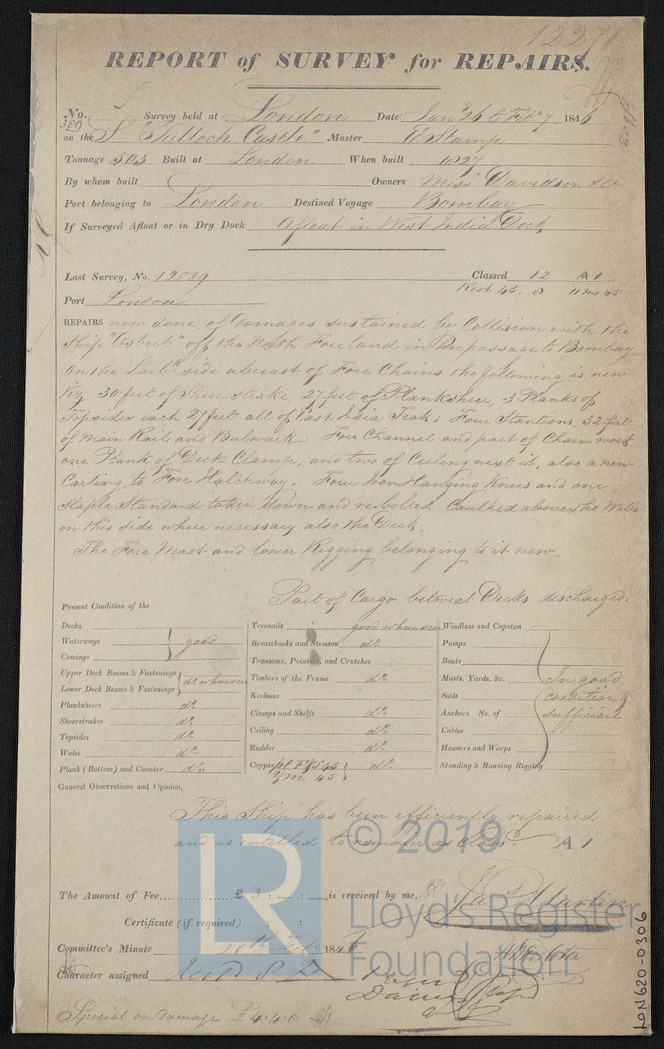 12271
REPORT of SURVEY for REPAIRS.
No. 380 Survey held at London Date Jany 26 to Feby 7 1846
on the S "Tulloch Castle" Master E Stamp
Tonnage 503 Built at London When built 1827
By whom built Owners Miss Davidson & Co
Port belonging to London Destined Voyage Bombay
If Surveyed Afloat or in Dry Dock Afloat in West India Dock
Last Survey, No. 12089 Classed 12 A 1
Port London Rest. 45. 11 Mo 45
REPAIRS now done, of Damages sustained by Collision with the
Ship "Osbert" off the North Foreland in her passage to Bombay
On the Larbd side abreast of Fore Chains the following is new
Viz 30 feet of Sheer Strake, 27 feet of Planksheer, 3 Planks of
Topsides each 27 feet all of East India Teak, Four Stantions, 32 feet
of Main Rail and Bulwark. Fore Channel and part of Chain work
one Plank of Deck Clamp, and two of Ceiling next it, also a new
Carling to Fore Hatchway. Four Iron Hanging Knees and one
Staple Standard taken down and rebolted. Caulked above the Water
on this side where necessary also the Deck.
The Fore Mast and lower Rigging belonging to it new.
Part of Cargo betwixt Decks discharged.
Present Condition of the
Decks
Waterways good
Comings
Upper Deck Beams & Fastenings do where seen
Lower Deck Beams & Fastenings
Planksheers do
Sheerstrakes do
Topsides do
Wales do
Plank (Bottom) and Counter do
Treenails good where seen
Breasthooks and Stemson do
Transoms, Pointers, and Crutches
Timbers of the Frame do
Keelsons
Clamps and Shelfs do
Ceiling do
Rudder do
Copper 45 do
Y.M. 45
Windlass and Capstan
Pumps
Boats
Masts, Yards, &c. In good
Sails condition &
Anchors No. of sufficient
Cables
Hawsers and Warps
Standing & Running Rigging
General Observations and Opinion,
This Ship has been efficiently repaired
and is entitled to remain as Class'd A 1
© 2019
LR
Lloyd's Register
Foundation
The Amount of Fee £ 3 : : is received by me, Jas Martin
Certificate (if required)
Committee's Minute 20th Feby 1846
Character assigned
Special on Damage £4.4.0
LON620-0306